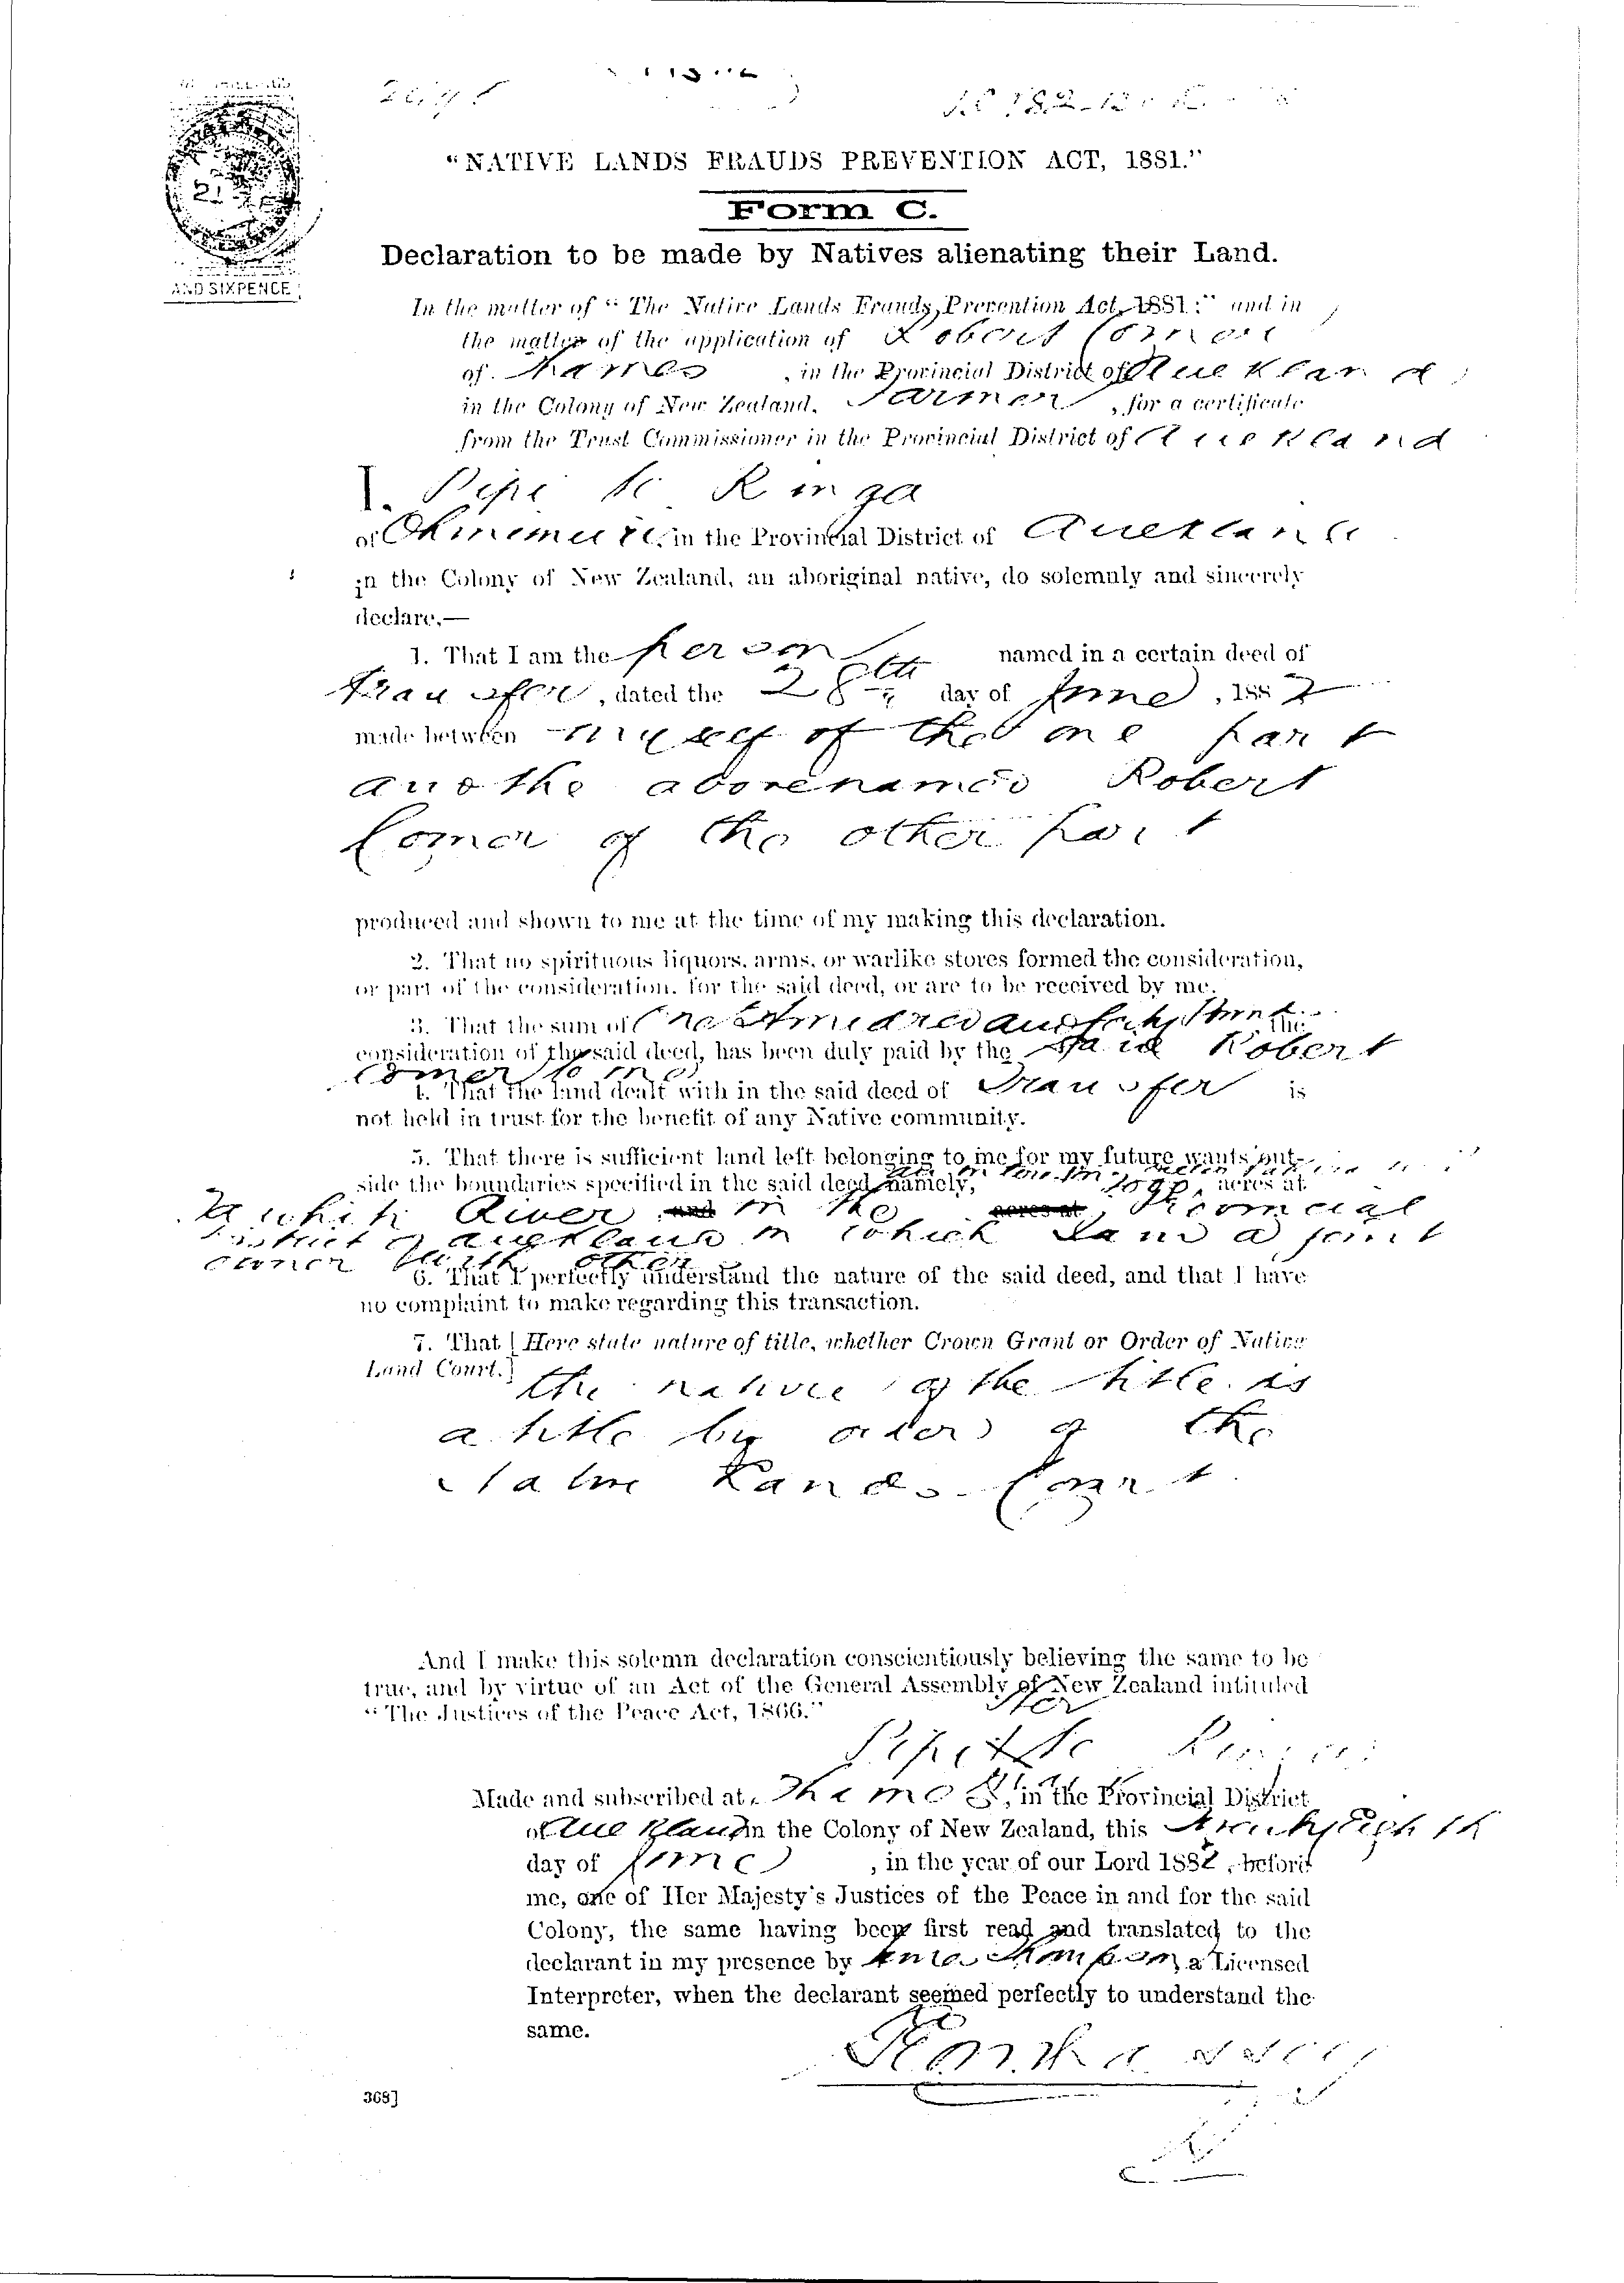 AND SIXPENCE
"NATIVE LANDS FRAUDS PREVENTION ACT, 1881."
Form C.
Declaration to be made by Natives alienating their Land.
In the matter of "The Native Lands Frauds Prevention Act, 1881:" and in
the matter of the application of Robert Comer
of Thames, in the Provincial District of Auckland
in the Colony of New Zealand, , for a certificate
from the Trust Commissioner in the Provincial District of Auckland
I, Pipi te Ringa
of Ohinemuri, in the Provincial District of Auckland
in the Colony of New Zealand, an aboriginal native, do solemnly and sincerely
declare,—
1. That I am the person named in a certain deed of
Transfer, dated the 28th day of June, 1882
made between myself of the one part
and the abovenamed Robert
Comer of the other part
produced and shown to me at the time of my making this declaration.
2. That no spirituous liquors, arms, or warlike stores formed the consideration,
or part of the consideration, for the said deed, or are to be received by me.
3. That the sum of One hundred and the
consideration of the said deed, has been duly paid by the said Robert
Comer to me
4. That the land dealt with in the said deed of Transfer is
not held in trust for the benefit of any Native community.
5. That there is sufficient land left belonging to me for my future wants out-
side the boundaries specified in the said deed, namely, acres at
River and in the acres at Provincial
District of Auckland in which I am a joint
owner with others
6. That I perfectly understand the nature of the said deed, and that I have
no complaint to make regarding this transaction.
7. That [Here state nature of title, whether Crown Grant or Order of Native
Land Court.]
the nature of the title is
a title by order of the
Native Lands Court
And I make this solemn declaration conscientiously believing the same to be
true, and by virtue of an Act of the General Assembly of New Zealand intituled
"The Justices of the Peace Act, 1866."
her
Pipi te Ringa
Made and subscribed at Thames, in the Provincial District
of Auckland in the Colony of New Zealand, this twenty eighth
day of June, in the year of our Lord 1882, before
me, one of Her Majesty's Justices of the Peace in and for the said
Colony, the same having been first read and translated to the
declarant in my presence by a Licensed
Interpreter, when the declarant seemed perfectly to understand the
same.
368]